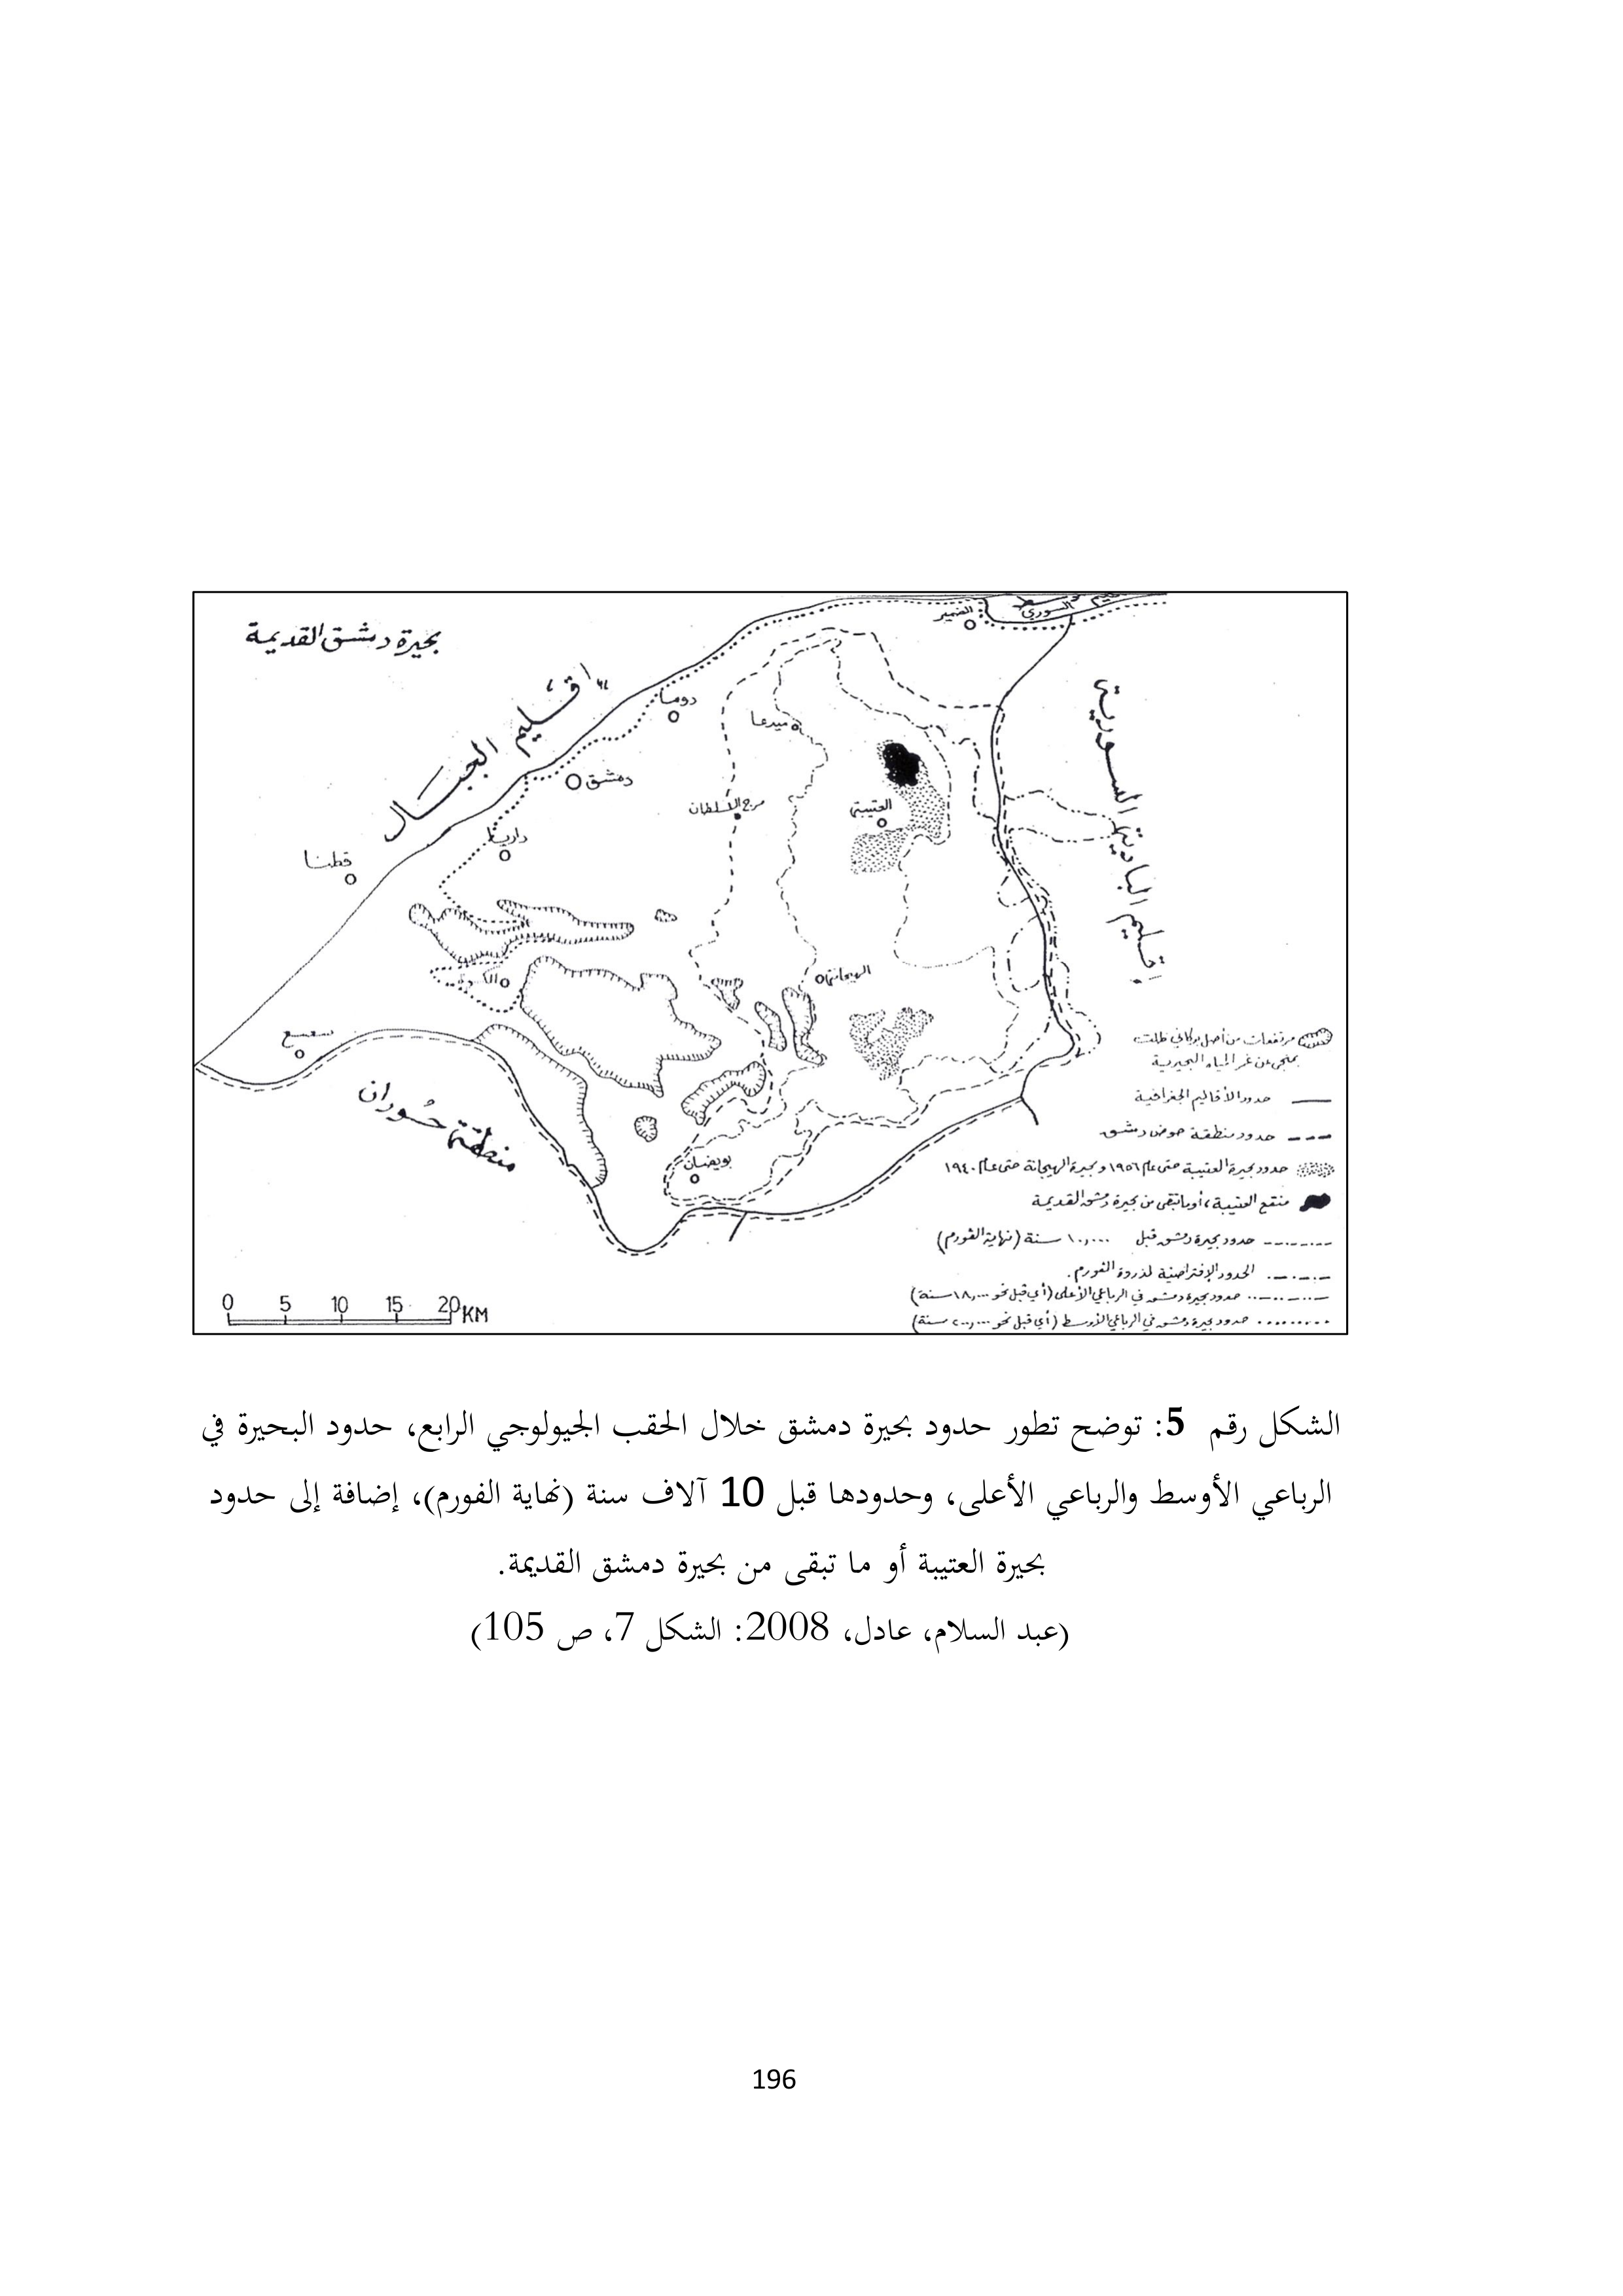 بحيرة دمشق القديمة
اقليم الجبال
السوري
الضمير
دوما
ميدعا
دمشق
مرج السلطان
العتيبة
داريا
قطنا
اقليم البادية السورية
الكسوة
الهيجانة
سعسع
منطقة حوران
بويضان
مرتفعات من أصل بركاني ظلت
بمنجى عن غمر المياه البحيرية
حدود الأقاليم الجغرافية
حدود منطقة حوض دمشق
حدود بحيرة العتيبة حتى عام ١٩٥٦ و بحيرة الهيجانة حتى عام ١٩٤٠
منقع العتيبة، أو ما تبقى من بحيرة دمشق القديمة
حدود بحيرة دمشق قبل ١٠,٠٠٠ سنة (نهاية الفورم)
الحدود الإفتراضية لذروة الفورم.
حدود بحيرة دمشق في الرباعي الأعلى (أي قبل نحو ١٨,٠٠٠ سنة)
حدود بحيرة دمشق في الرباعي الأوسط (أي قبل نحو ٢٠٠,٠٠٠ سنة)
0 5 10 15 20 KM
الشكل رقم 5: توضح تطور حدود بحيرة دمشق خلال الحقب الجيولوجي الرابع، حدود البحيرة في
الرباعي الأوسط والرباعي الأعلى، وحدودها قبل 10 آلاف سنة (نهاية الفورم)، إضافة إلى حدود
بحيرة العتيبة أو ما تبقى من بحيرة دمشق القديمة.
(عبد السلام، عادل، 2008: الشكل 7، ص 105)
196